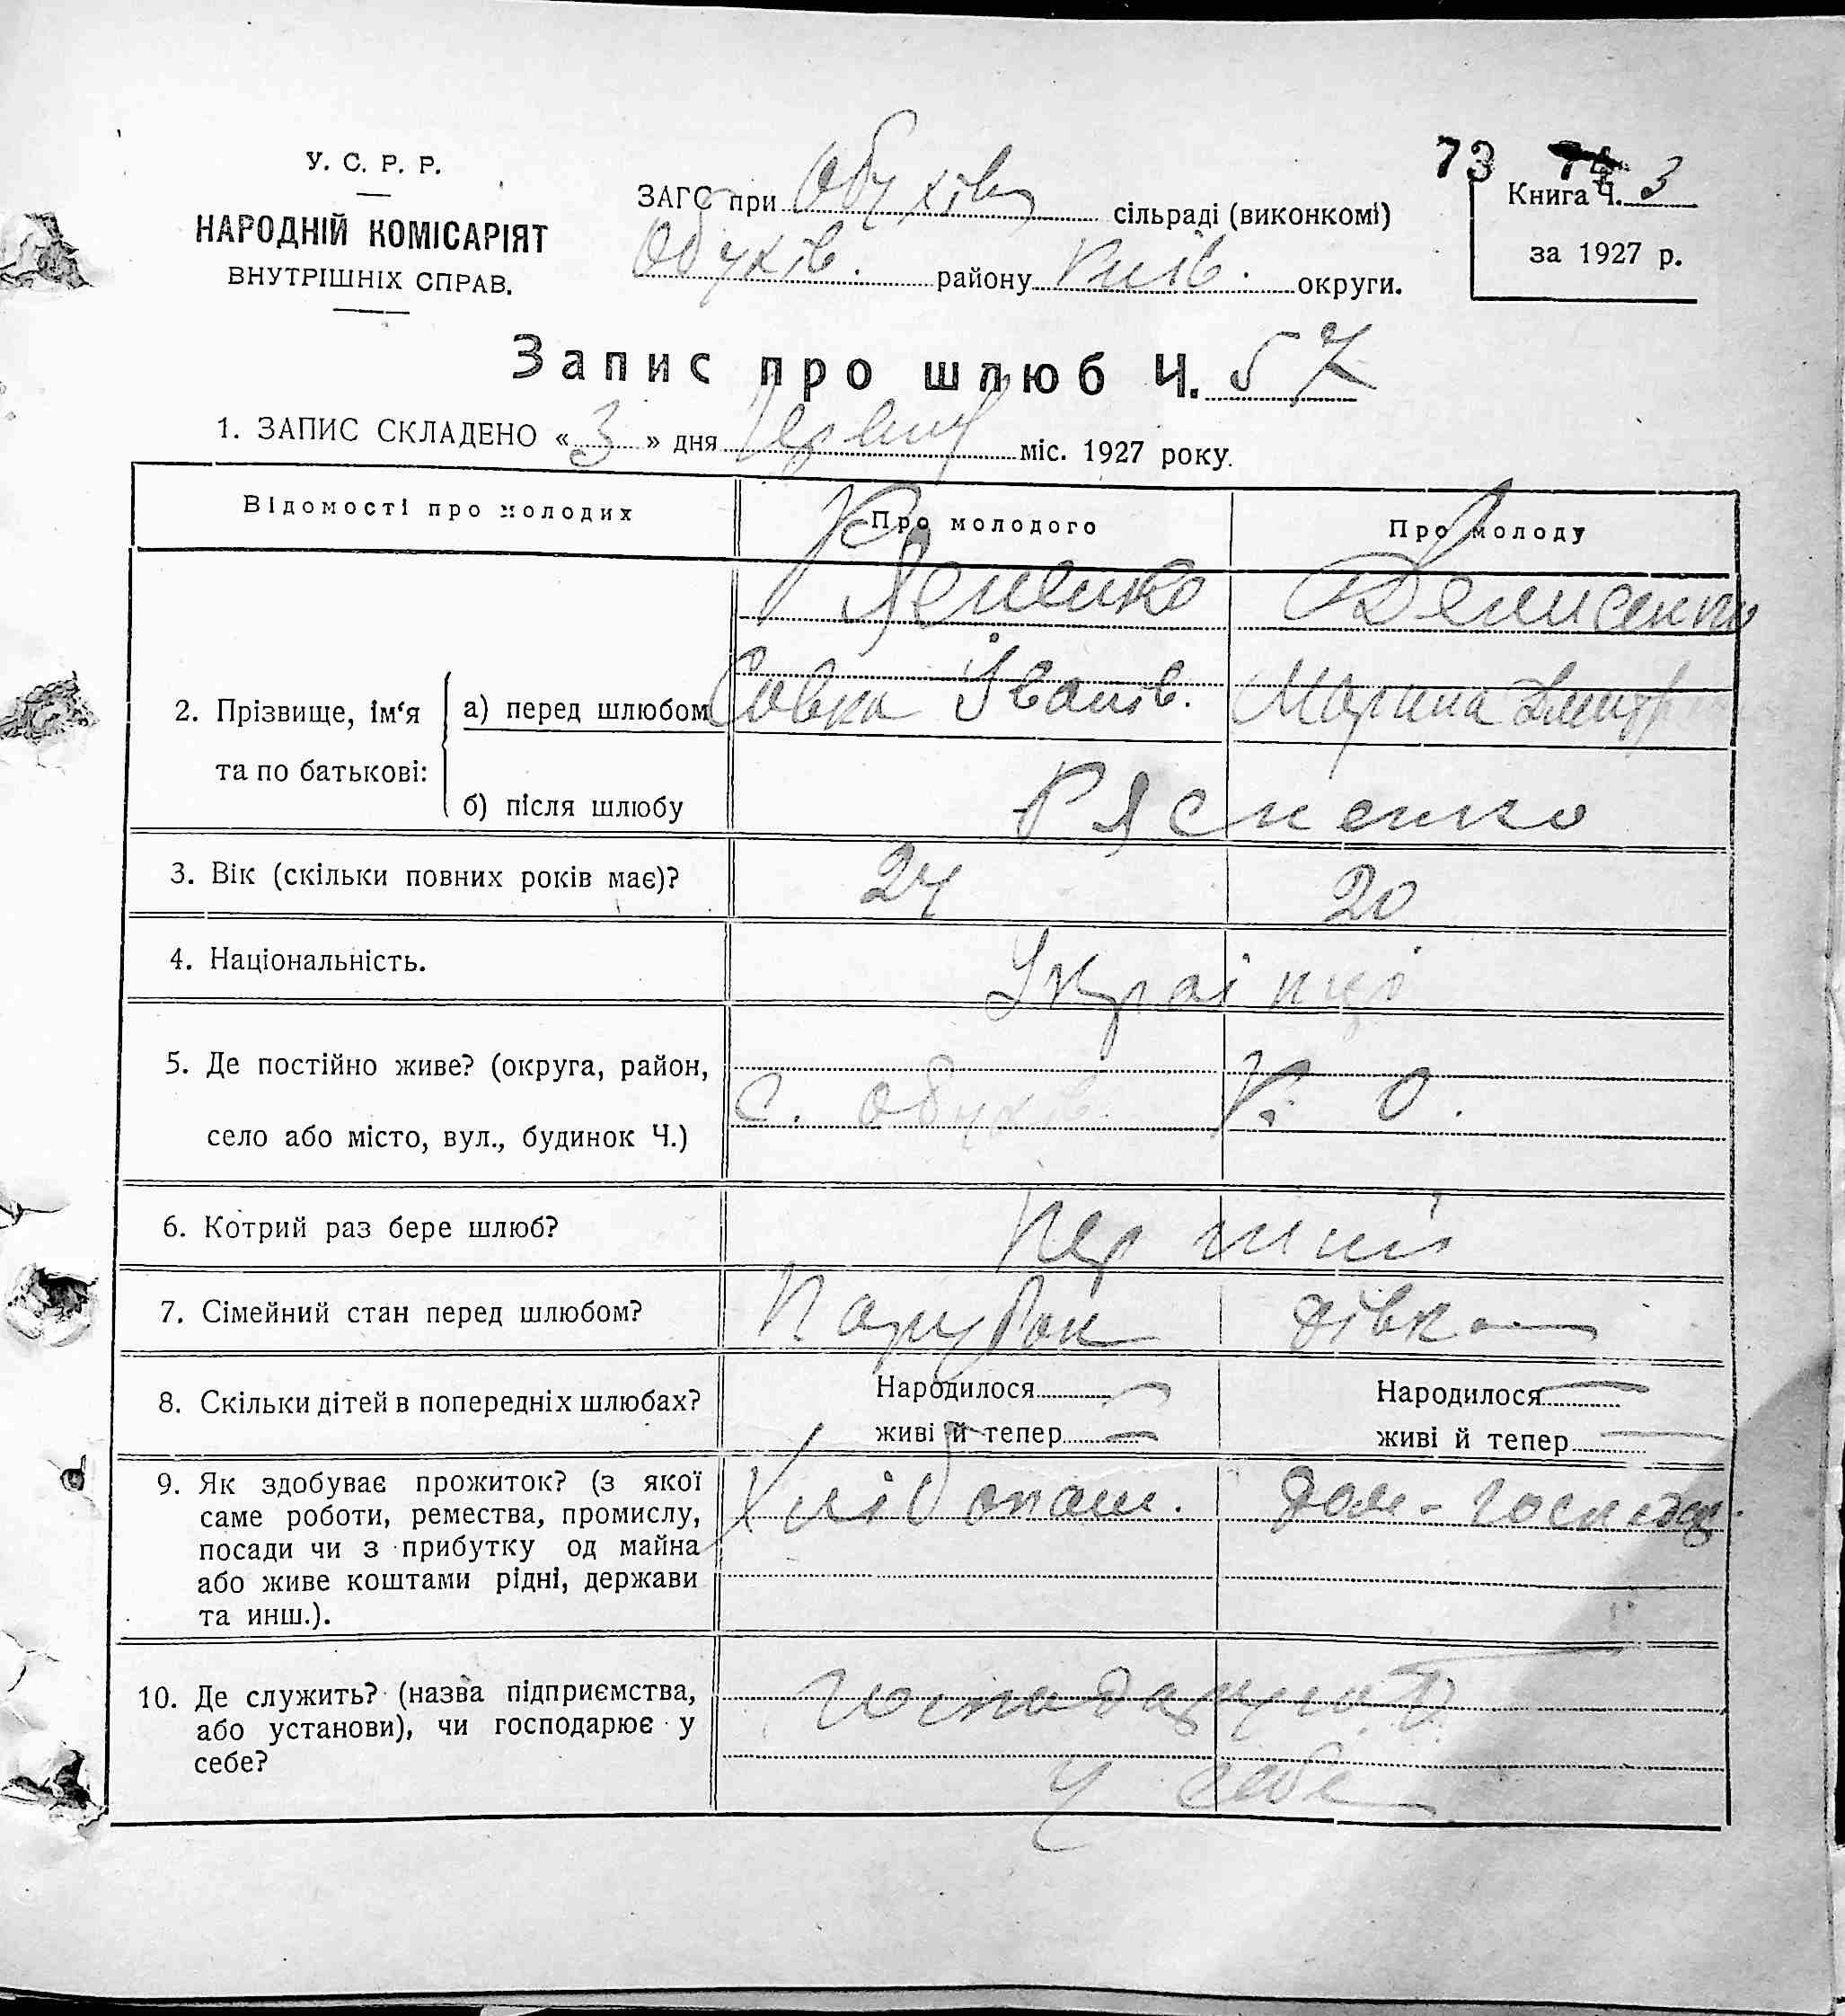 73 74
У. С. Р. Р.
НАРОДНІЙ КОМІСАРІЯТ
ВНУТРІШНІХ СПРАВ.
ЗАГС при Обухів сільраді (виконкомі)
Обухів. району Київ. округи.
Книга Ч. 3
за 1927 р.
Запис про шлюб Ч. 57
1. ЗАПИС СКЛАДЕНО « 3 » дня Червня міс. 1927 року.
Відомості про молодих Про молодого Про молоду
2. Прізвище, ім'я та по батькові:
а) перед шлюбом
Денисенко
Савка Іванів. Марина Дмитр
б) після шлюбу Рясненко
3. Вік (скільки повних років має)? 24 20
4. Національність. Українці
5. Де постійно живе? (округа, район,
село або місто, вул., будинок Ч.)
с. Обухів К. О.
6. Котрий раз бере шлюб? Перший
7. Сімейний стан перед шлюбом? Парубок дівка
8. Скільки дітей в попередніх шлюбах? Народилося — Народилося —
живі й тепер — живі й тепер —
9. Як здобуває прожиток? (з якої
саме роботи, ремества, промислу,
посади чи з прибутку од майна
або живе коштами рідні, держави
та инш.).
Хлібопаш. Дом-господ.
10. Де служить? (назва підприємства,
або установи), чи господарює у
себе?
у себе